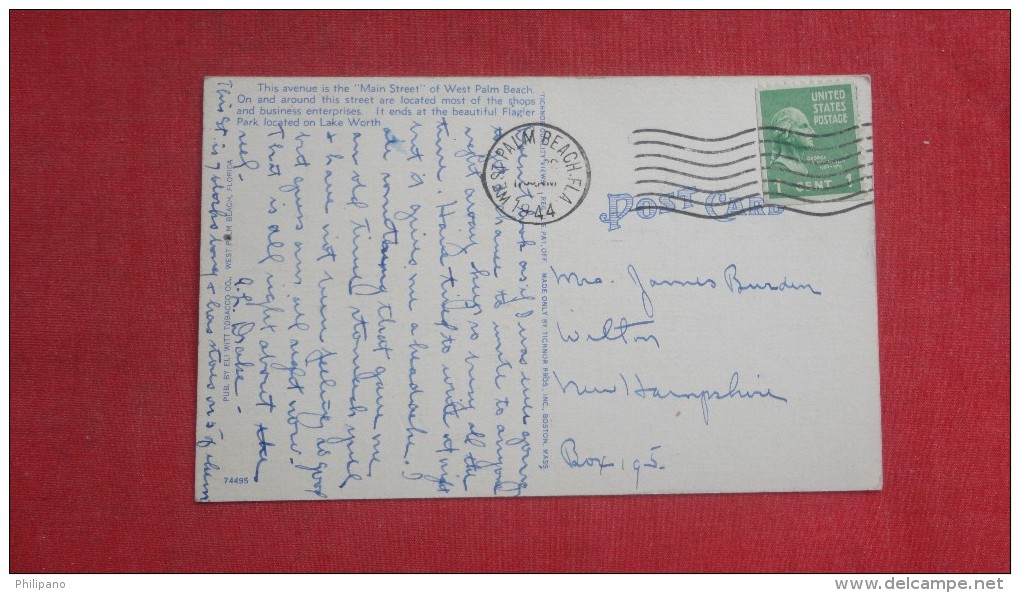 This avenue is the "Main Street" of West Palm Beach.
On and around this street are located most of the shops
and business enterprises. It ends at the beautiful Flagler
Park located on Lake Worth
as if I was ever going
chance to write to anyone
right away busy all the
time. Have tried to write at night
but it gives me a headache.
ate something that gave me
an old time stomach spell
& have not been feeling so good
but guess am all right now.
That is all right about the
Drake -
This st. is 7 blocks long & has stores on 5 of them
PUB. BY ELI WITT TOBACCO CO., WEST PALM BEACH, FLORIDA
74495
MADE ONLY BY TICHNOR BROS., INC., BOSTON, MASS.
WEST PALM BEACH, FLA
1944
POST CARD
UNITED
STATES
POSTAGE
1 CENT 1
Mrs. James Burden
Wilton
New Hampshire
Box 195.
Philipano
www.delcampe.net